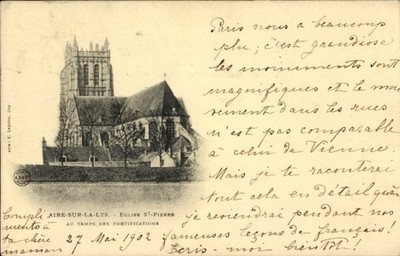 Paris nous a beaucoup
plu; c'est grandiose
les monuments sont
magnifiques et le mou
vement dans les rues
n'est pas comparable
à celui de Vienne.
Mais je te raconterai
tout cela en détail quand
je reviendrai pendant nos
fameuses leçons de français!
Ecris-moi bientôt!
AIRE-SUR-LA-LYS. - EGLISE St-PIERRE
AU TEMPS DES FORTIFICATIONS
Compli
ments à
ta chère
maman
27 Mai 1902